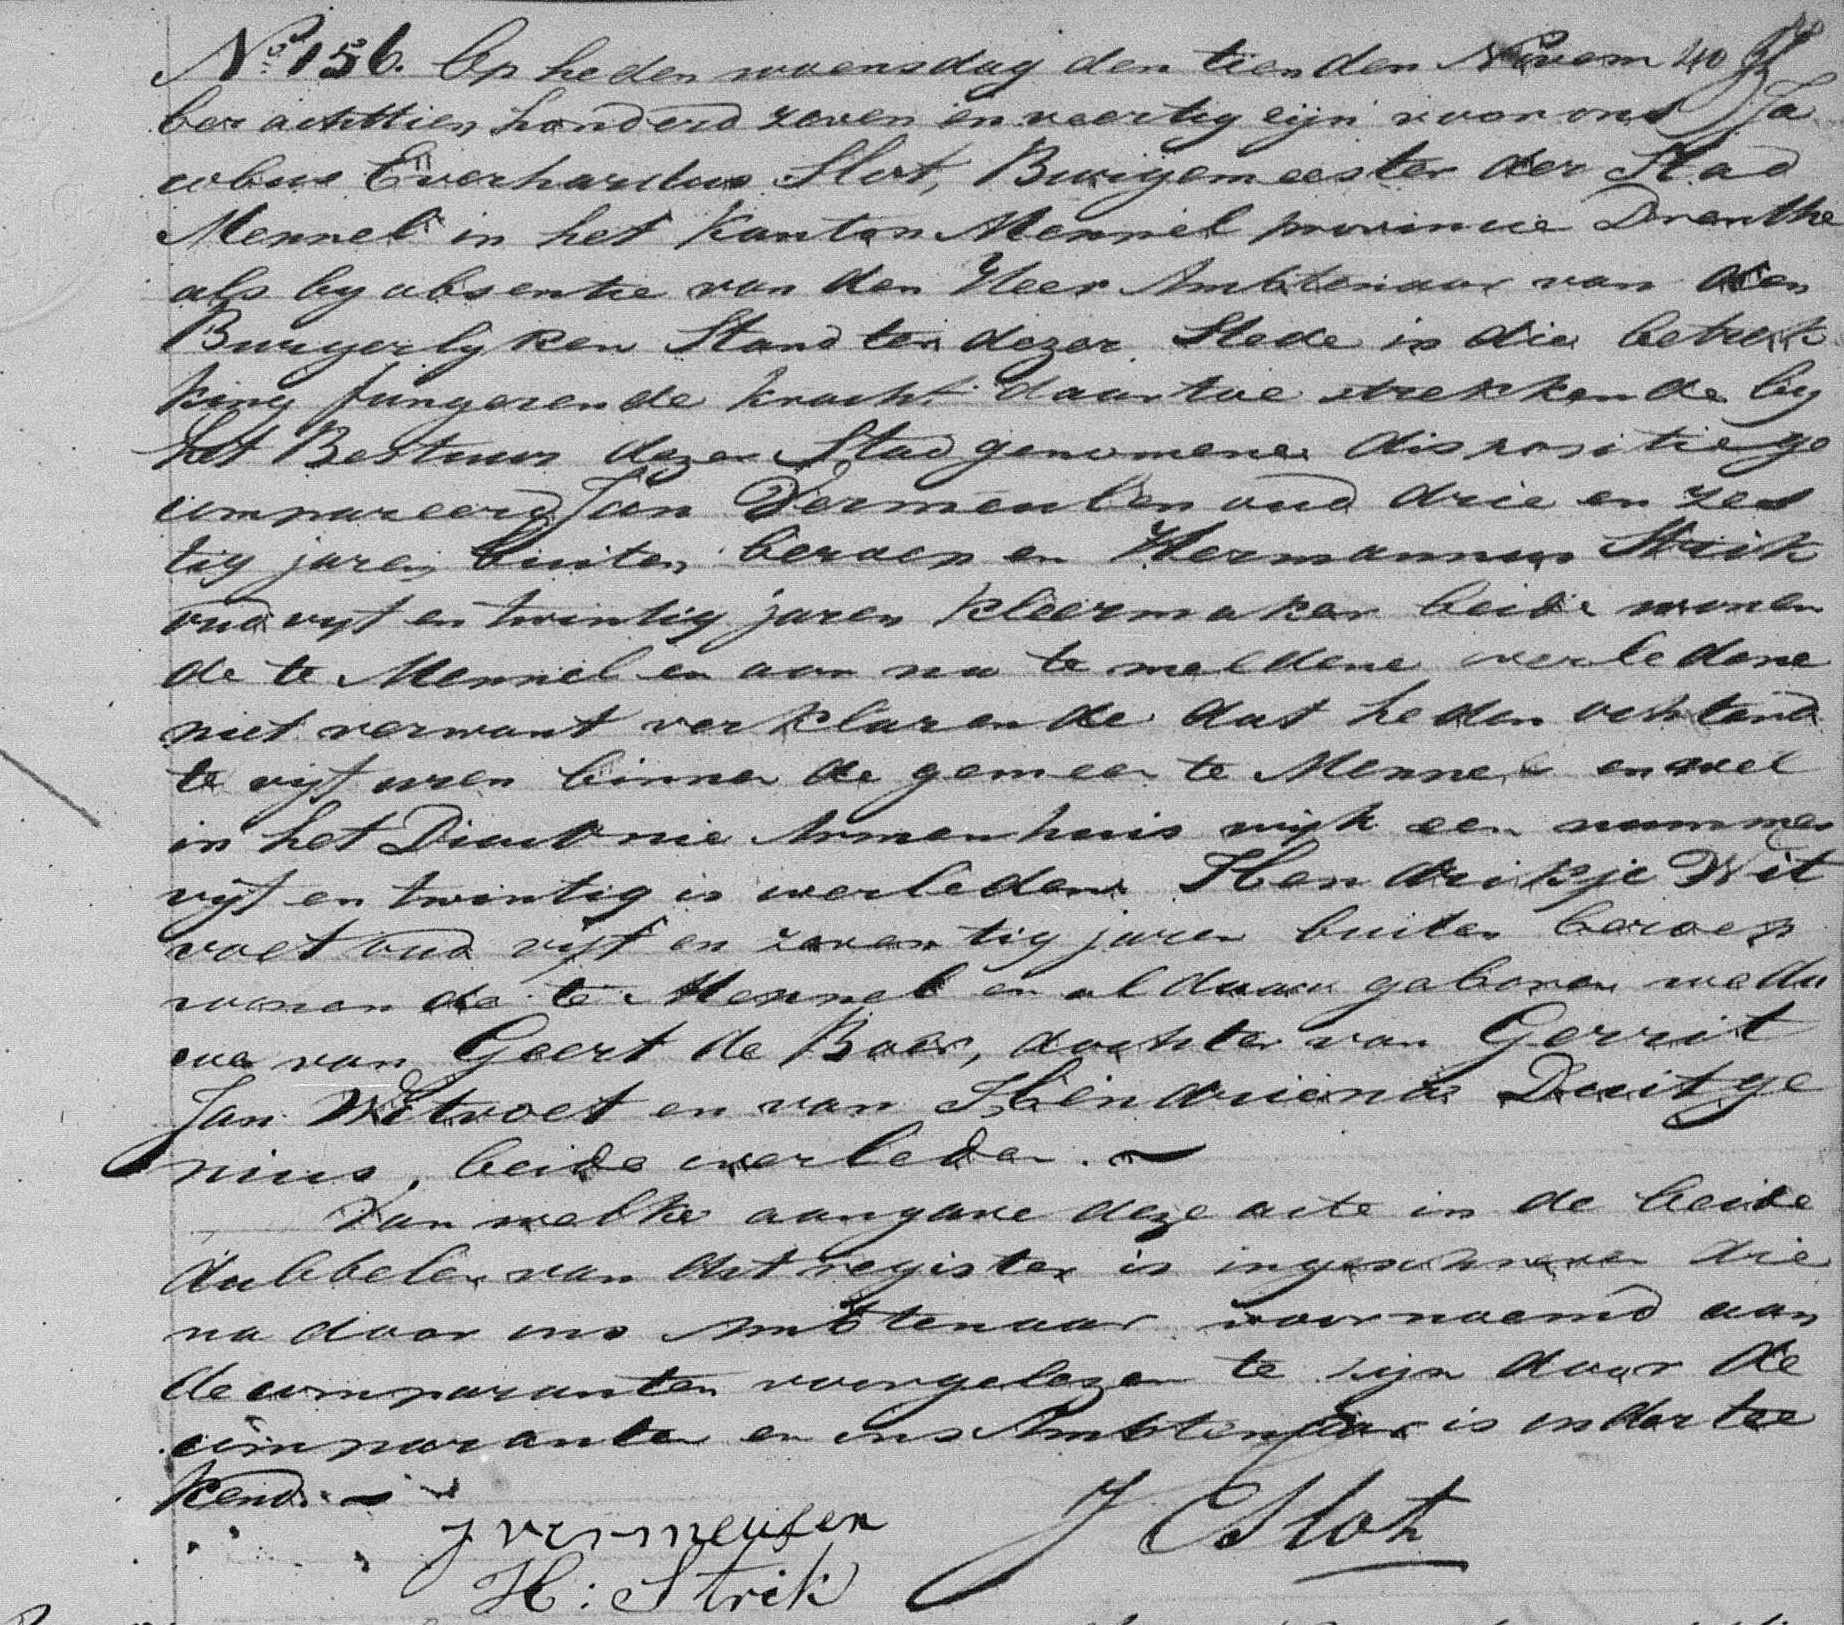 No. 156. Op heden woensdag den tienden Novem 40
ber achttien honderd zeven en veertig zijn voor ons Ja
cobus Everhardus Slot, Burgemeester der Stad
Meppel in het Kanton Meppel provincie Drenthe
als by absentie van den Heer Ambtenaar van den
Burgerlyken Stand ten dezer Stede in die betrek
king fungerende kracht daartoe strekkende by
het Bestuur dezer Stad genomene dispositie ge
compareerd Jan Vermeulen oud drie en zes
tig jaren buiten beroep en Hermannus Strik
oud vyf en twintig jaren kleermaker beide wonen
de te Meppel en aan na te meldene overledene
niet verwant verklarende dat heden ochtend
te vyf uren binnen de gemeente Meppel en wel
in het Diaconie Armenhuis wijk een nummer
vyf en twintig is overleden Hendrikje Wit
voet oud vyf en zeventig jaren buiten beroep
wonende te Meppel en aldaar geboren wedu
we van Geert de Boer, dochter van Gerrit
Jan Witvoet en van Hendriena Duitge
nius, beide overleden. ~
Van welke aangave deze acte in de beide
dubbelen van dit register is ingeschreven die
na door ons Ambtenaar voornoemd aan
de comparanten voorgelezen te zijn door de
comparanten en ons Ambtenaar is onder tee
kend. ~
J vermeulen J E Slot
H: Strik